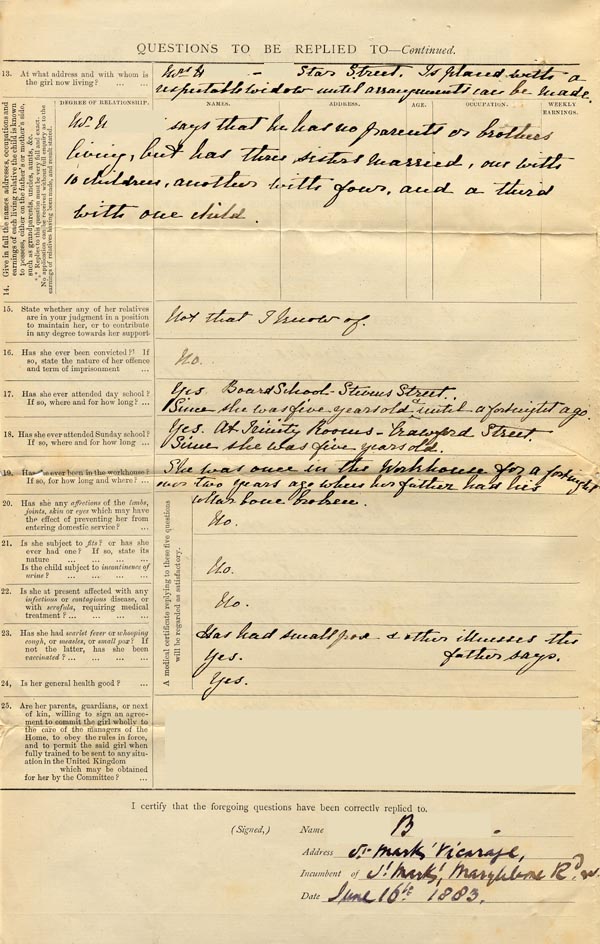 QUESTIONS TO BE REPLIED TO—Continued.
13. At what address and with whom is
the girl now living? ... ...
Mrs H - Star Street. Is placed with a
respectable widow until arrangements can be made.
14. Give in full the names addresses, occupations and
earnings of each living relative the child is known
to possess, either on the father's or mother's side,
such as grandparents, uncles, aunts, &c.
*** Replies to this question must be very full and exact.
No application can be received without full enquiry as to the
earnings of relatives having been made, and result stated.
DEGREE OF RELATIONSHIP. NAMES. ADDRESS. AGE. OCCUPATION. WEEKLY
EARNINGS.
says that he has no parents or brothers
living, but has three sisters married, one with
10 children, another with four, and a third
with one child.
15. State whether any of her relatives
are in your judgment in a position
to maintain her, or to contribute
in any degree towards her support
Not that I know of.
16. Has she ever been convicted? If
so, state the nature of her offence
and term of imprisonment ...
No.
17. Has she ever attended day school?
If so, where and for how long? ...
Yes Board School - Stevens Street.
Since she was five years old until a fortnight ago.
18. Has she ever attended Sunday school?
If so, where and for how long ...
Yes. At Trinity Rooms - Crawford Street.
Since she was five years old.
19. Has she ever been in the workhouse?
If so, for how long and where? ...
She was once in the Workhouse for a fortnight
over two years ago when her father had his
collar bone broken.
A medical certificate replying to these five questions
will be regarded as satisfactory.
20. Has she any affections of the limbs,
joints, skin or eyes which may have
the effect of preventing her from
entering domestic service? ...
No.
21. Is she subject to fits? or has she
ever had one? If so, state its
nature ... ... ... ...
Is the child subject to incontinence of
urine? ... ... ... ...
No.
22. Is she at present affected with any
infectious or contagious disease, or
with scrofula, requiring medical
treatment? ... ... ... ...
No.
23. Has she had scarlet fever or whooping
cough, or measles, or small pox? If
not the latter, has she been
vaccinated? ... ... ... ...
Has had small pox & other illnesses the
Yes. father says.
24. Is her general health good? ...
Yes.
25. Are her parents, guardians, or next
of kin, willing to sign an agree-
ment to commit the girl wholly to
the care of the managers of the
Home, to obey the rules in force,
and to permit the said girl when
fully trained to be sent to any situ-
ation in the United Kingdom
which may be obtained
for her by the Committee? ...
I certify that the foregoing questions have been correctly replied to.
(Signed,) Name B
Address St Marks' Vicarage,
Incumbent of St Marks', Marylebone Rd
Date June 16th 1883.